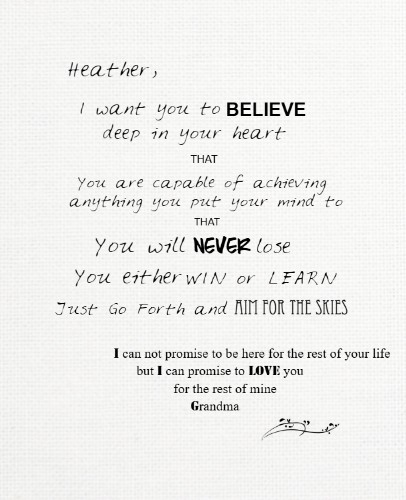 Heather,
I want you to BELIEVE
deep in your heart
THAT
You are capable of achieving
anything you put your mind to
THAT
You will NEVER lose
You either WIN or LEARN
Just Go Forth and AIM FOR THE SKIES
I can not promise to be here for the rest of your life
but I can promise to LOVE you
for the rest of mine
Grandma